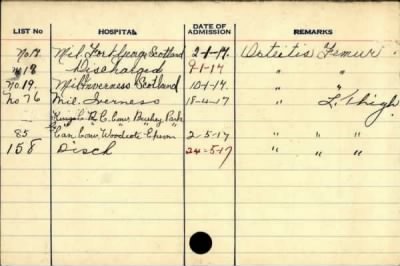 LIST NO HOSPITAL DATE OF ADMISSION REMARKS
No 17. Mil. Fort George Scotland 2-1-17. Osteitis Femur
" 18 Discharged 9-1-17 " "
No 19. Mil Inverness Scotland 10-1-17. " "
No 76 Mil. Inverness 18-4-17 L. Thigh
King's R. C. Conv Bushy Park
85 Can Conv Woodcote Epsom 2-5-17 " " "
158 Disch 24-5-17 " " "